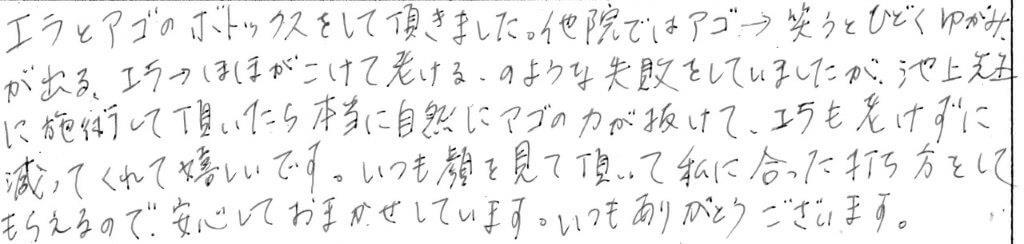 エラとアゴのボトックスをして頂きました。他院ではアゴ→笑うとひどくゆがみ
が出る、エラ→ほほがこけて老ける、のような失敗をしていましたが、池上先生
に施術して頂いたら本当に自然にアゴの力が抜けて、エラも老けずに
減ってくれて嬉しいです。いつも顔を見て頂いて私に合った打ち方をして
もらえるので、安心しておまかせしています。いつもありがとうございます。